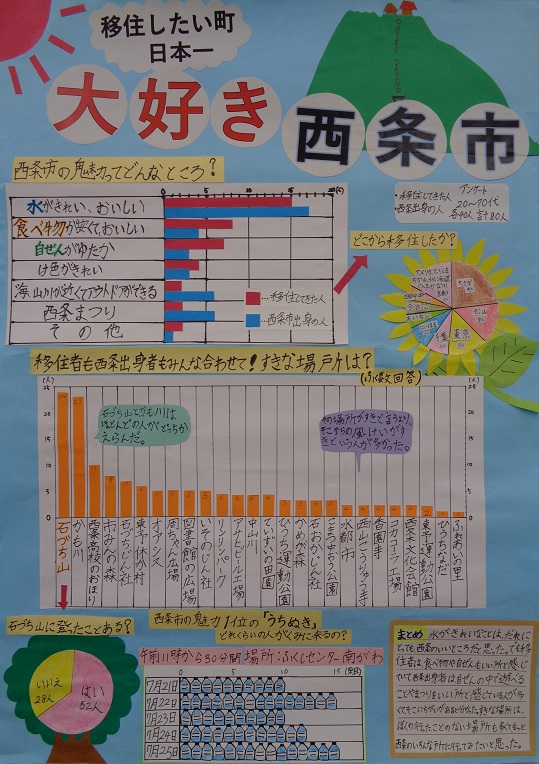 移住したい町
日本一
大好き西条市
西条市の魅力ってどんなところ?
水がきれい、おいしい
食べ物が安くて、おいしい
自ぜんがゆたか
け色がきれい
海山川が近くてアウトドアができる
西条まつり
その他
…移住してきた人
…西条市出身の人
アンケート
・移住してきた人
・西条出身の人
20~70代
各40人 計80人
どこから移住したか?
移住者も西条出身者もみんな合わせて!すきな場所は?
(ふく数回答)
石づち山とかも川は
ほとんどの人がどっちか
えらんだ。
その場所がすきと言うより、
そこからの風けいがす
きという人が多かった。
石づち山
かも川
西条高校のおほり
市のみの森
石づちじん社
東予休か村
オアシス
周ちゃん広場
図書館の広場
いそのじん社
リンリンパーク
アサヒビール工場
中山川
ていすいの田園
ひうち運動公園
かめが森
石おかじん社
こまつ中おう公園
水都市
西山こうりゅう寺
香園寺
コカコーラ工場
西条文化会館
東予運動公園
ひうちなだ
ふれあいの里
石づち山に登ったことある?
いいえ
28人
はい
52人
西条市の魅力1位の「うちぬき」
どれくらいの人がくみに来るの?
午前11時から30分間 場所:ふくしセンター南がわ
7月21日
7月22日
7月23日
7月24日
7月25日
まとめ 水がきれいなことは、だれに
とっても西条のいいところだと思った。でも移
住者は、食べ物や自ぜんもいい所と感じ
ていて西条出身者は自ぜんの中で遊べる
ことがまつりもいい所と感じている人が多
ぼくの行ったことのない場所も多くてもっと
西条のいろんな所に行ってみたいと思った。